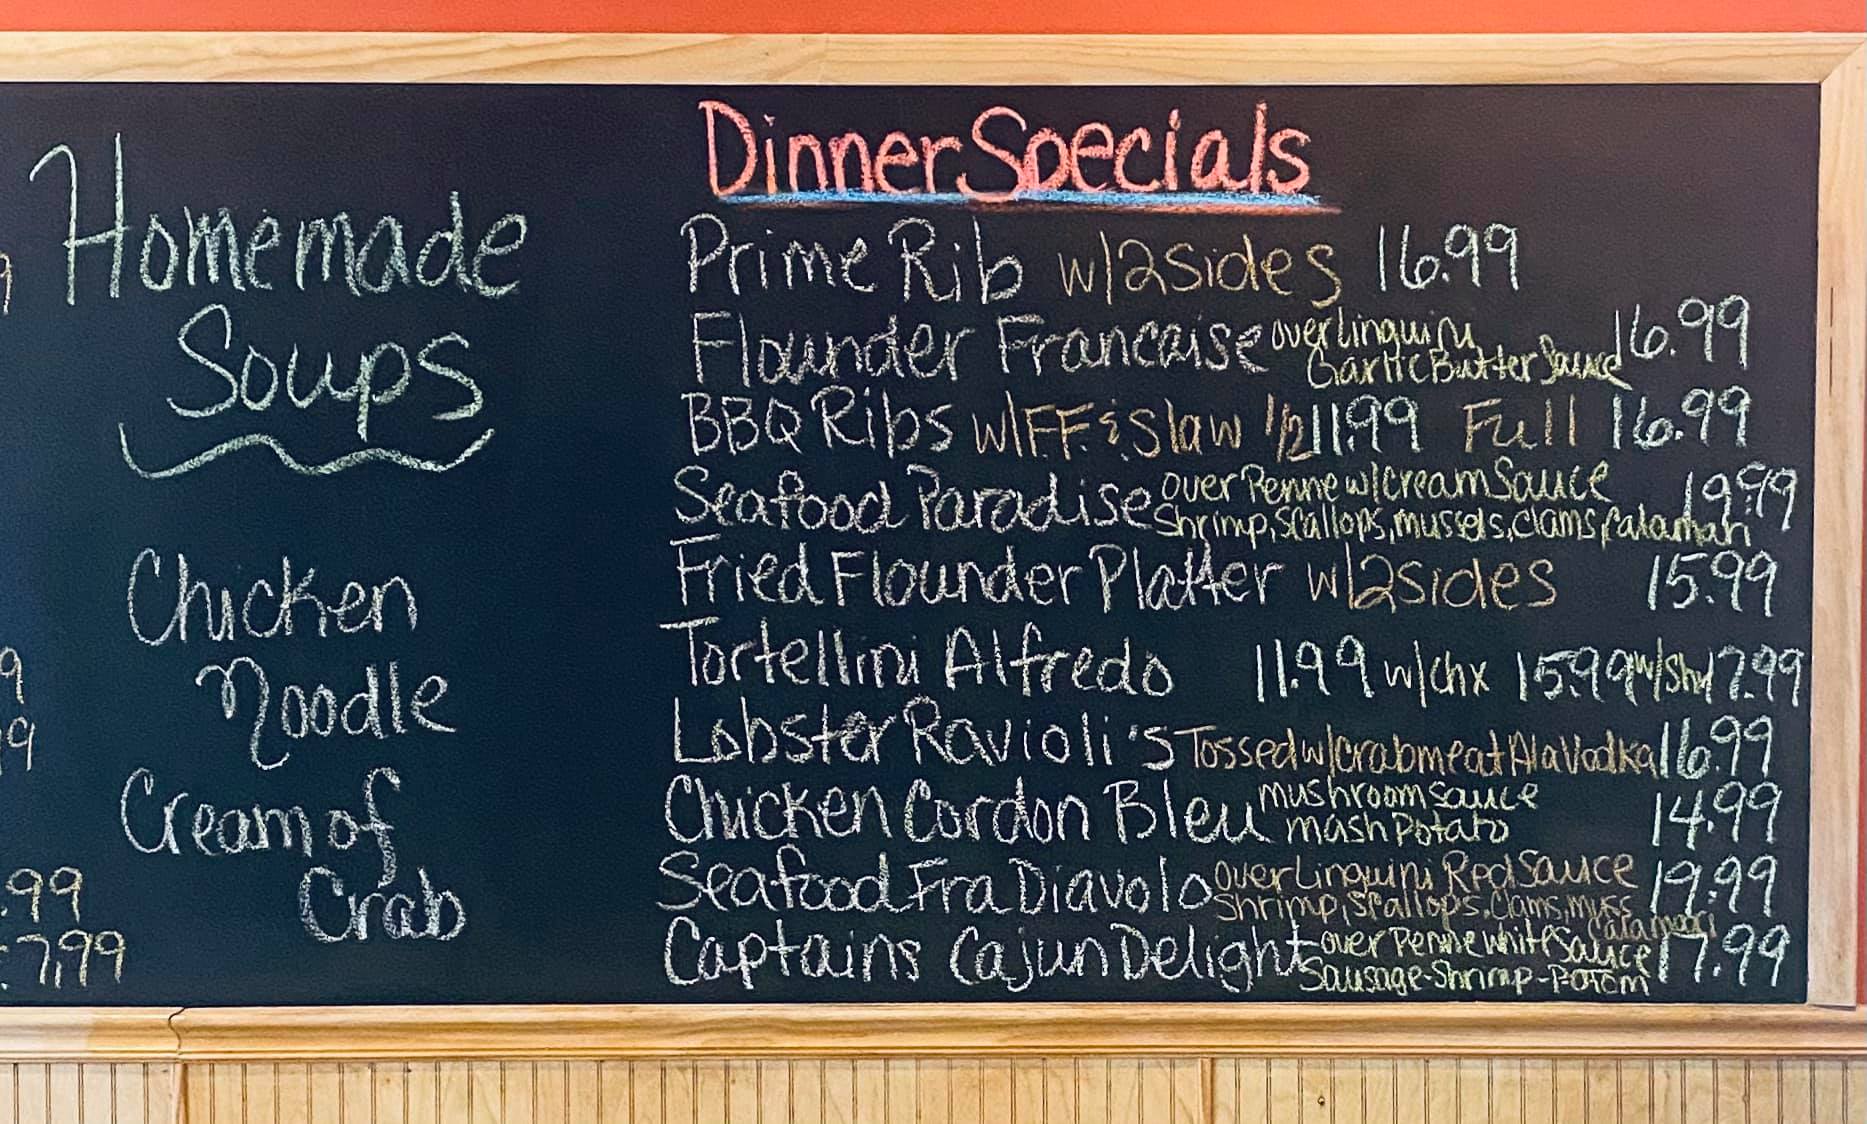 Homemade
Soups
Chicken
Noodle
Cream of
Crab
9
9
99
.99
7.99
Dinner Specials
Prime Rib w/2 Sides 16.99
Flounder Francaise over Linguini
Garlic Butter Sauce 16.99
BBQ Ribs w/F.F. & Slaw 1/2 11.99 Full 16.99
Seafood Paradise over Penne w/cream Sauce 19.99
Shrimp, Scallops, mussels, clams, calamari
Fried Flounder Platter w/2 sides 15.99
Tortellini Alfredo 11.99 w/chx 15.99 w/shr 17.99
Lobster Ravioli's Tossed w/crabmeat Ala Vodka 16.99
Chicken Cordon Bleu mushroom sauce 14.99
mash Potato
Seafood Fra Diavolo over Linguini Red Sauce 19.99
Shrimp, Scallops, Clams, muss
calamari
Captains Cajun Delight over Penne white Sauce 17.99
Sausage-Shrimp-